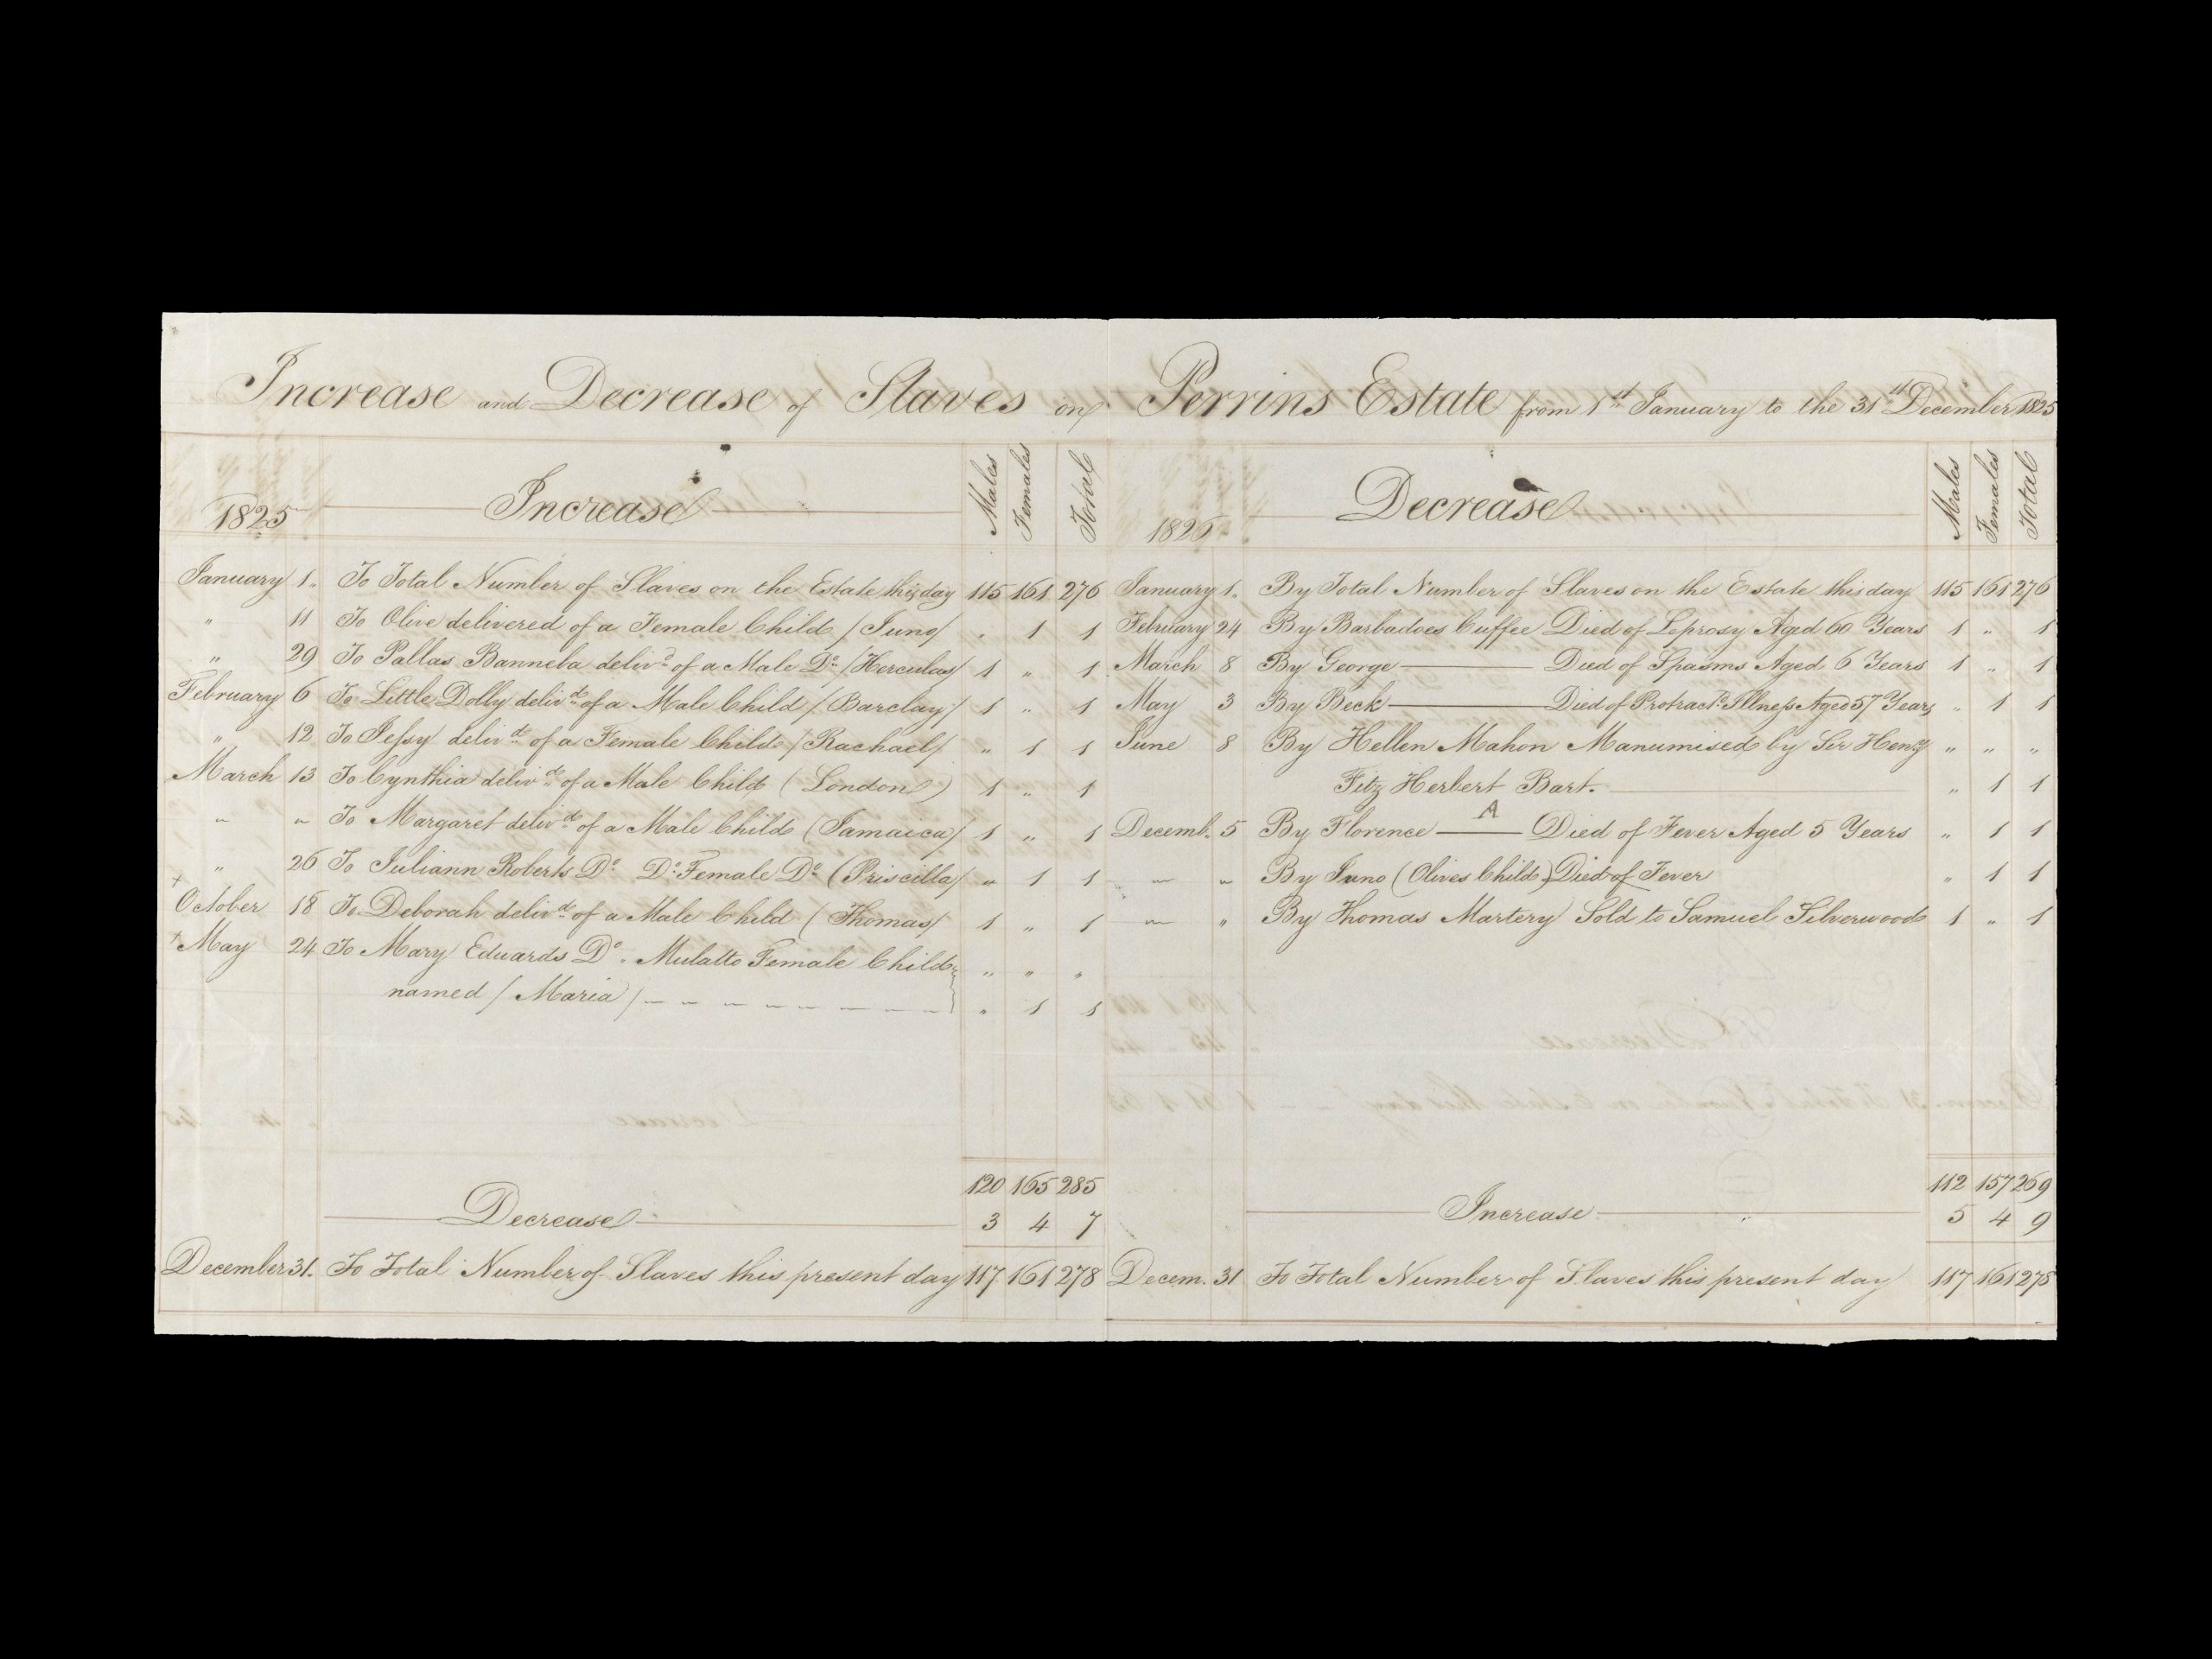 Increase and Decrease of Slaves on Perrins Estate from 1st January to the 31st December 1825
1825 Increase Males Females Total
January 1. To Total Number of Slaves on the Estate this day 115 161 276
" 11 To Olive delivered of a Female Child (Juno) " 1 1
" 29 To Pallas Banneba delivd of a Male Do (Herculas) 1 " 1
February 6 To Little Dolly delivd of a Male Child (Barclay) 1 " 1
" 12 To Jessy delivd of a Female Child (Rachael) " 1 1
March 13 To Cynthia delivd of a Male Child (London) 1 " 1
" " To Margaret delivd of a Male Child (Jamaica) 1 " 1
" 26 To Juliann Roberts Do Do Female Do (Priscilla) " 1 1
+ October 18 To Deborah delivd of a Male Child (Thomas) 1 " 1
+ May 24 To Mary Edwards Do. Mulatto Female Child " " "
named (Maria) " 1 1
120 165 285
Decrease 3 4 7
December 31. To Total Number of Slaves this present day 117 161 278
1825 Decrease Males Females Total
January 1. By Total Number of Slaves on the Estate this day 115 161 276
February 24 By Barbadoes Cuffee Died of Leprosy Aged 60 Years 1 " 1
March 8 By George Died of Spasms Aged 6 Years 1 " 1
May 3 By Beck Died of Protractd Illness Aged 57 Years " 1 1
June 8 By Hellen Mahon Manumised by Sir Heny " " "
Fitz Herbert Bart. " 1 1
A
Decemb. 5 By Florence Died of Fever Aged 5 Years " 1 1
" " By Juno (Olives Child) Died of Fever " 1 1
" " By Thomas Martery Sold to Samuel Silverwood 1 " 1
112 157 269
Increase 5 4 9
Decem. 31 To Total Number of Slaves this present day 117 161 278